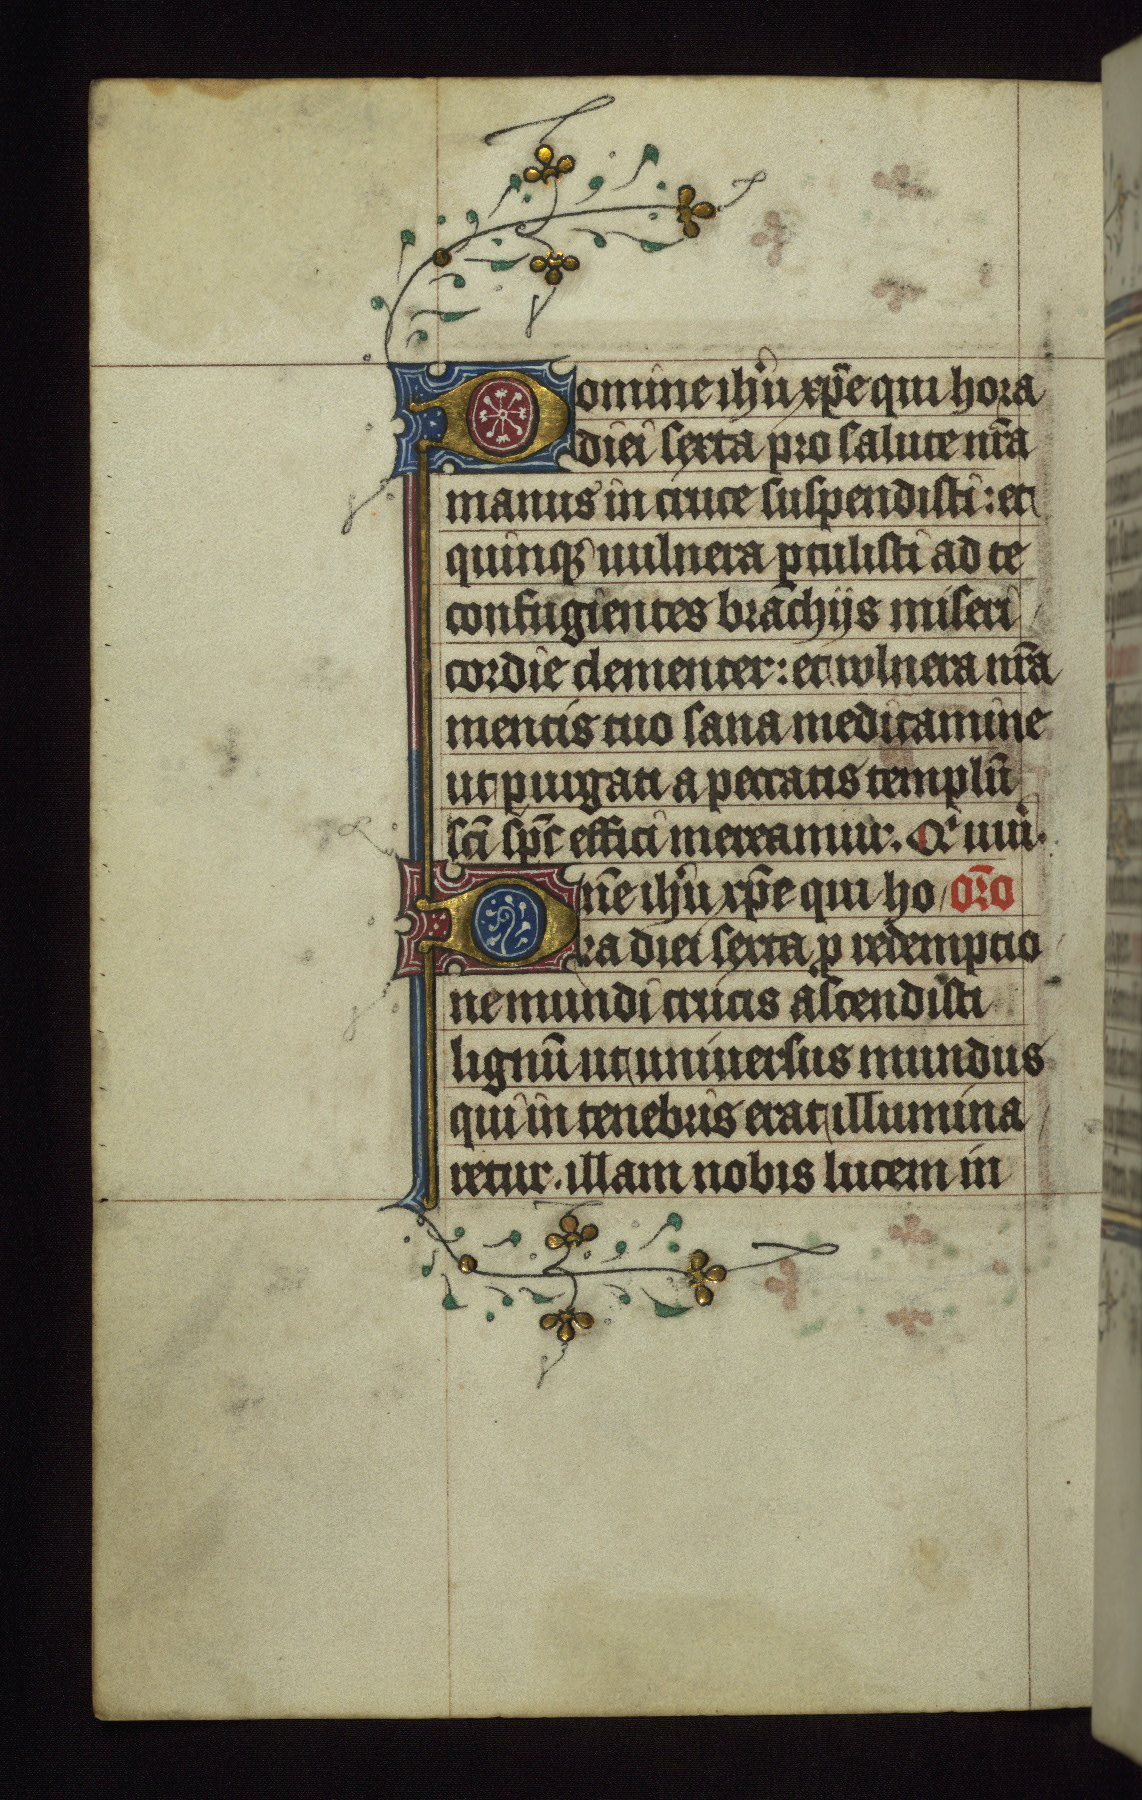 Domine ihũ xp̃e qui hora
diei sexta pro salute nr̃a
manus in cruce suspendisti: et
quinqꝫ uulnera ꝑtulisti ad te
confugientes brachijs miseri
cordie clementer: et wlnera nr̃a
mentis tuo sana medicamine
ut purgati a peccatis templũ
sc̃i sp̃c effici mereamur. Qͥ uiui.
Dñe ihũ xp̃e qui ho or̃o
ra diei sexta ꝑ redemptio
ne mundi crucis ascendisti
lignũ ut uniuersus mundus
qui in tenebris erat illumina
retur. illam nobis lucem in